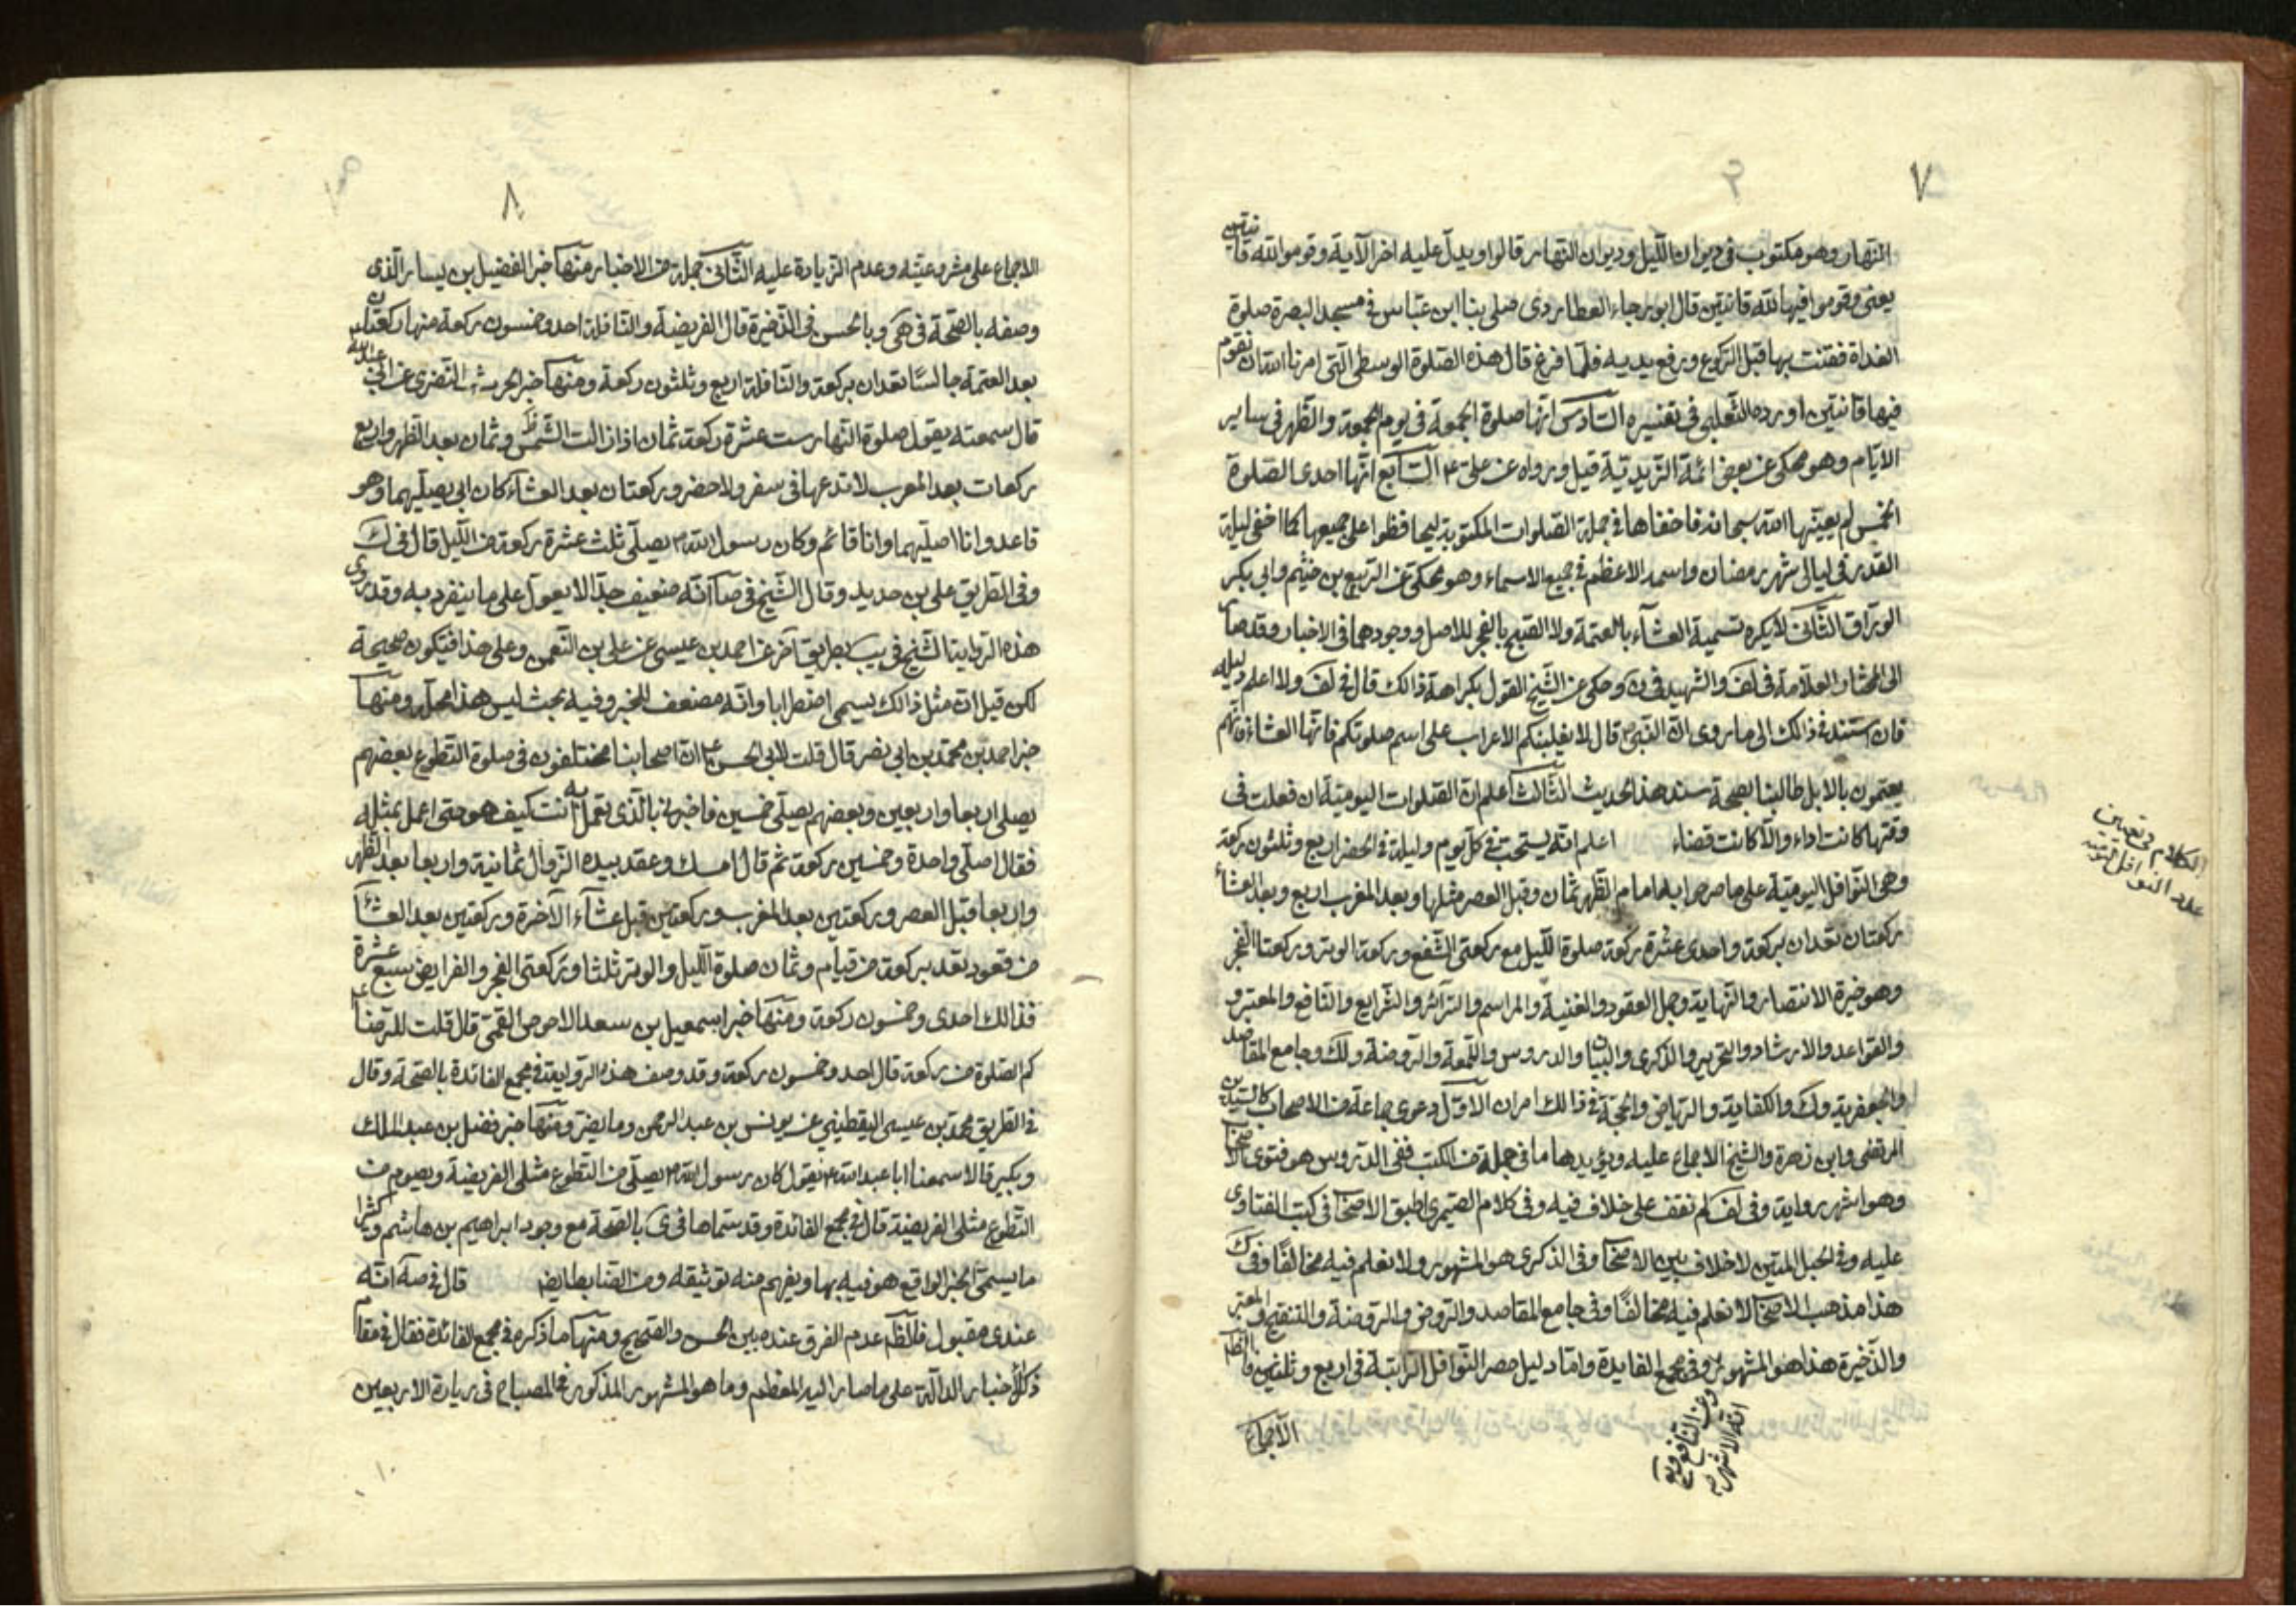 ٧
النهار وهو مكتوب في ديوان الليل وديوان النهار قالوا ويدل عليه اخر الآية وقوموا لله قانتين
يعني وقوموا فيها لله قانتين قال ابو رجاء العطاردي صلى بنا ابن عباس في مسجد البصرة صلوة
الغداة فقنت بها قبل الركوع ورفع يديه فلما فرغ قال هذه الصلوة الوسطى التي امرنا الله ان نقوم
فيها قانتين اورده الثعلبي في تفسيره السادس انها صلوة الجمعة في يوم الجمعة والظهر في ساير
الايام وهو محكي عن بعض ائمة الزيدية قيل ورواه عن علي ع السابع انها احدى الصلوة
الخمس لم يعينها الله سبحانه فاخفاها في جملة الصلوات المكتوبة ليحافظوا على جميعها كما اخفى ليلة
القدر في ليالي شهر رمضان واسمه الاعظم في جميع الاسماء وهو محكي عن الربيع بن خيثم وابي بكر
الوراق الثاني لا يكره تسمية العشاء بالعتمة ولا الصبح بالفجر للاصل ووجودهما في الاخبار وقد صار
الى المختار العلامة في لف والشهيد في ن وحكى عن الشيخ القول بكراهة ذالك قال في لف ولا اعلم دليله
فان استند في ذالك الى ما روى ان النبي ص قال لا يغلبنكم الاعراب على اسم صلوتكم فانها العشاء فانهم
يعتمون بالابل طالبنا بصحة سند هذا الحديث الثالث اعلم ان الصلوات اليومية ان فعلت في
وقتها كانت اداء والا كانت قضاء اعلم انه يستحب في كل يوم وليلة في الحضر اربع وثلثون ركعة
وهي النوافل اليومية على ما صرحوا به امام الظهر ثمان وقبل العصر مثلها وبعد المغرب اربع وبعد العشاء
ركعتان تعدان بركعة واحدى عشرة ركعة صلوة الليل مع ركعتي الشفع وركعة الوتر وركعتا الفجر
وهو خيرة الانتصار والنهاية وجمل العقود والغنية والمراسم والسرائر والشرايع والنافع والمعتبر و
والقواعد والارشاد والتحرير والذكرى والبيان والدروس واللمعة والروضة ولك وجامع المقاصد
والجعفرية وك والكفاية والرياض والحجة في ذالك امران الاول دعوى جماعة من الاصحاب كالسيدين
المرتضى وابن زهرة والشيخ الاجماع عليه ويؤيدها ما في جملة من الكتب ففي الدروس هو فتوى الاصحاب
وهو اشهر رواية وفي لف لم نقف على خلاف فيه وفي كلام الصيمري اطبق الاصحاب في كتب الفتاوى
عليه وفي الحبل المتين لا خلاف بين الاصحاب وفي الذكرى هو المشهور ولا نعلم فيه مخالفا وفي ك
هذا مذهب الاصحاب لا نعلم فيه مخالفا وفي جامع المقاصد والروض والروضة والتنقيح والمعتبر
والذخيرة هذا هو المشهور وفي مجمع الفايدة واما دليل حصر النوافل الراتبة في اربع وثلثين فالظ
الاجماع
وعن النافع وية
انه الاشهر
الكلام في تعيين
عدد النوافل اليومية
٨
الاجماع على مشروعيته وعدم الزيادة عليه الثاني جملة من الاخبار منها خبر الفضيل بن يسار الذي
وصفه بالصحة في هى وبالحسن في الذخيرة قال الفريضة والنافلة احد وخمسون ركعة منها ركعتان
بعد العتمة جالسا تعدان بركعة والنافلة اربع وثلثون ركعة ومنها خبر الحرث النضري عن ابي عبد الله
قال سمعته يقول صلوة النهار ست عشرة ركعة ثمان اذا زالت الشمس وثمان بعد الظهر واربع
ركعات بعد المغرب لا تدعها في سفر ولا حضر وركعتان بعد العشاء كان ابي يصليهما وهو
قاعد وانا اصليهما وانا قائم وكان رسول الله ص يصلي ثلث عشرة ركعة من الليل قال في ك
وفي الطريق علي بن حديد وقال الشيخ في صا انه ضعيف جدا لا يعول على ما ينفرد به وقد روى
هذه الرواية الشيخ في يب بطريق آخر عن احمد بن عيسى عن علي بن النعمن وعلى هذا فتكون صحيحة
لكن قيل ان مثل ذالك يسمى اضطرابا وانه مضعف للخبر وفيه بحث ليس هذا محله ومنها
خبر احمد بن محمد بن ابي نصر قال قلت لابي الحسن ع ان اصحابنا مختلفون في صلوة التطوع بعضهم
يصلي اربعا واربعين وبعضهم يصلي خمسين فاخبرني بالذي تعمل به انت كيف هو حتى اعمل بمثله
فقال اصلي واحدة وخمسين ركعة ثم قال امسك وعقد بيده الزوال ثمانية واربعا بعد الظهر
واربعا قبل العصر وركعتين بعد المغرب وركعتين قبل عشاء الآخرة وركعتين بعد العشاء
من قعود تعد بركعة من قيام وثمان صلوة الليل والوتر ثلثا وركعتي الفجر والفرايض سبع عشرة
فذالك احدى وخمسون ركعة ومنها خبر اسمعيل بن سعد الاحوص القمي قال قلت للرضا ع
كم الصلوة من ركعة قال احد وخمسون ركعة وقد وصف هذه الرواية في مجمع الفائدة بالصحة وقال
في الطريق محمد بن عيسى اليقطيني عن يونس بن عبد الرحمن وما يضر ومنها خبر فضل بن عبد الملك
وبكير قالا سمعنا ابا عبد الله ع يقول كان رسول الله ص يصلي من التطوع مثلي الفريضة ويصوم من
التطوع مثلي الفريضة قال في مجمع الفائدة وقد سماها في ى بالصحة مع وجود ابراهيم بن هاشم وكثيرا
ما يسمى الخبر الواقع هو فيه بها ويفهم منه توثيقه ومن الضابط ايض قال في صه انه
عندي مقبول فالظ عدم الفرق عنده بين الحسن والصحيح ومنها ما ذكره في مجمع الفائدة فقال في مقام
ذكر الاخبار الدالة على ما صار اليه المعظم وما هو المشهور المذكور في المصباح في زيارة الاربعين